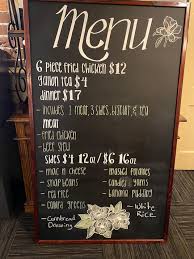 Menu
6 piece fried chicken $12
tea $4
dinner $17
- includes 1 meat, 3 sides, biscuit, & tea
meat
- fried chicken
- beef stew
sides $4 12oz / $6 16oz
- mac n cheese
- snap beans
- red rice
- collard greens
- cornbread
dressing
- mashed potatoes
- candied yams
- banana pudding
- white
rice